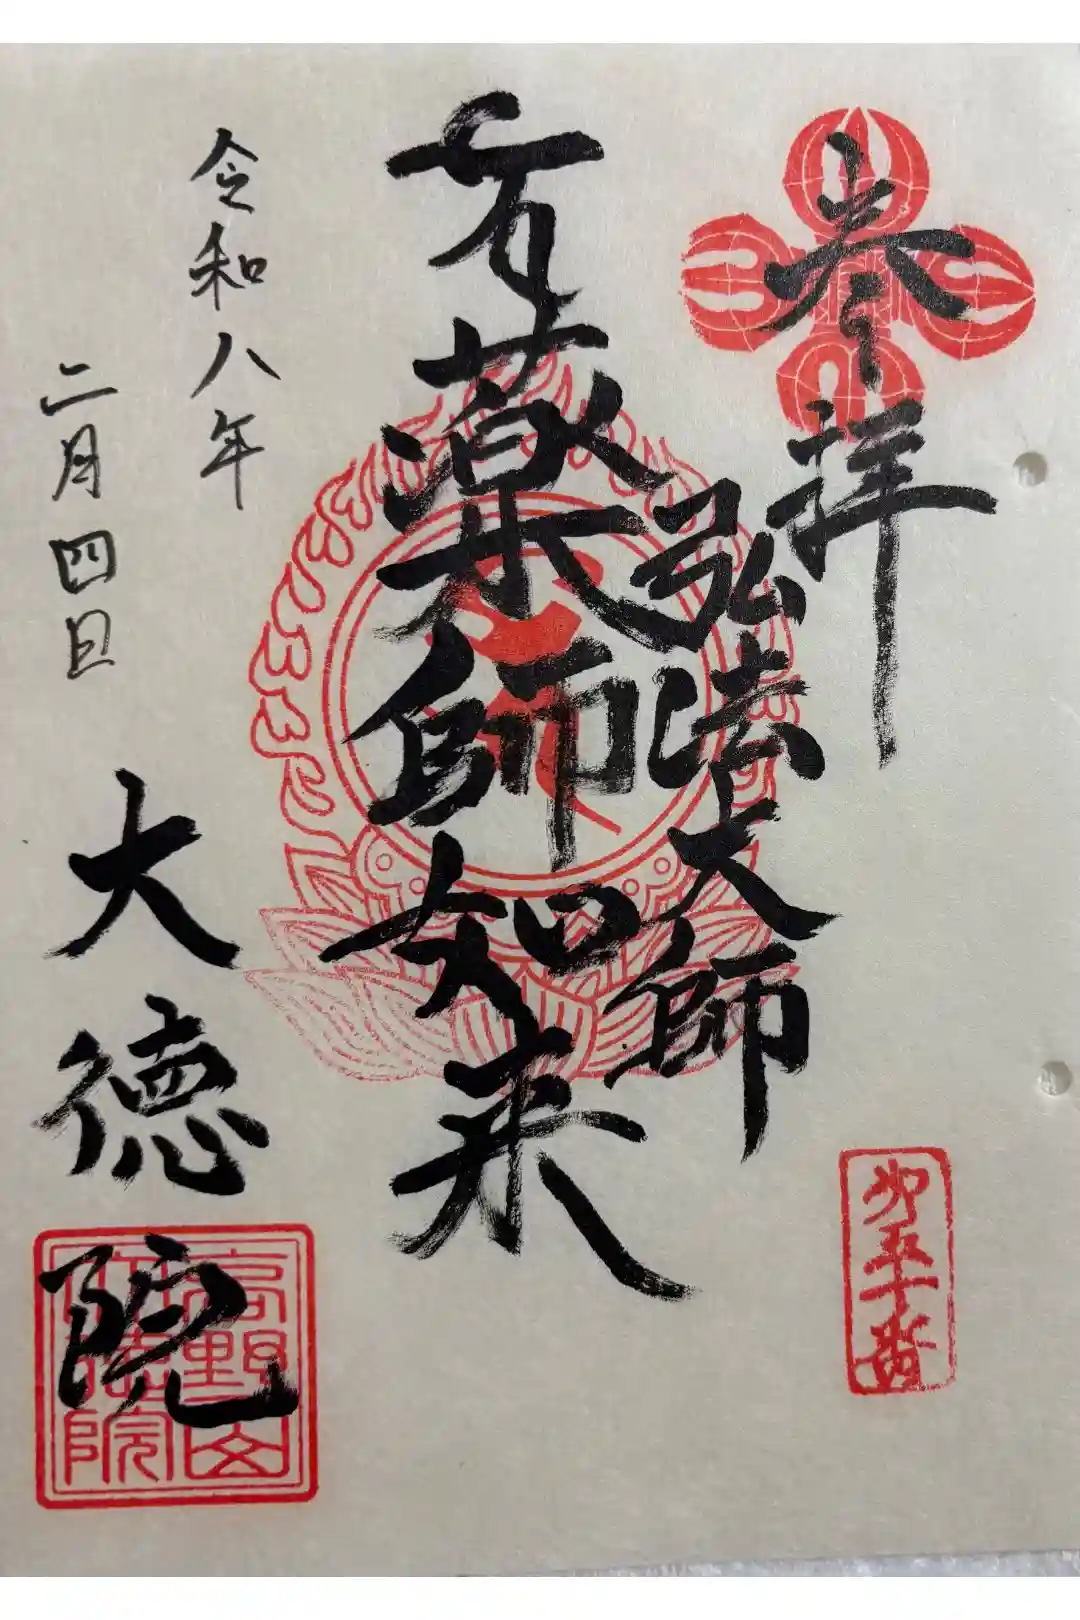 奉拝
弘法大師
寅薬師如来
令和八年
二月四日
大徳院
御五十番
高野山
大徳院